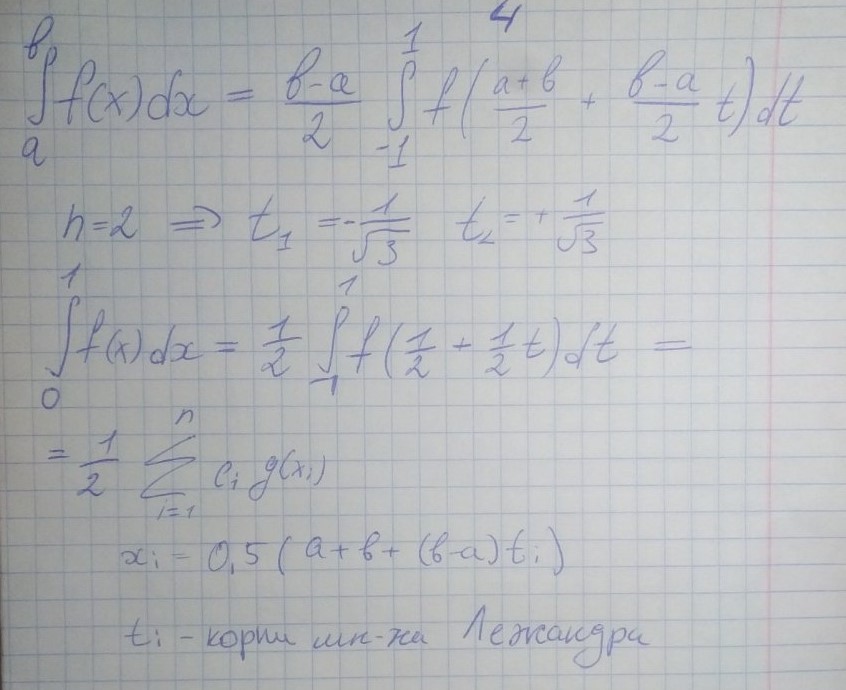 4
∫_a^b f(x)dx = (b-a)/2 ∫_{-1}^1 f((a+b)/2 + (b-a)/2 t)dt
n=2 ⇒ t₁ = -1/√3 t₂ = +1/√3
∫_0^1 f(x)dx = 1/2 ∫_{-1}^1 f(1/2 + 1/2 t)dt =
= 1/2 ∑_{i=1}^n c_i g(x_i)
x_i = 0,5(a+b+(b-a)t_i)
t_i - корни мн-на Лежандра